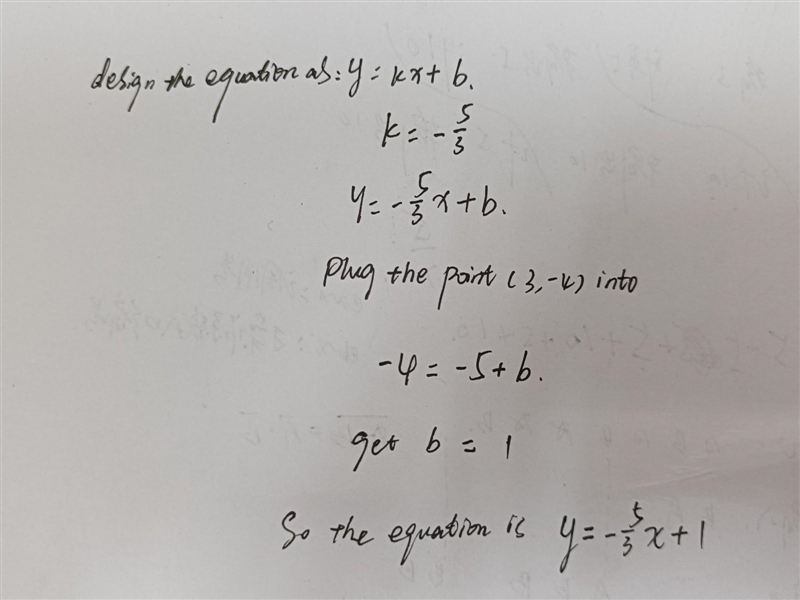 design the equation as: y = kx + b.
k = -5/3
y = -5/3 x + b.
plug the point (3, -4) into
-4 = -5 + b.
get b = 1
So the equation is y = -5/3 x + 1